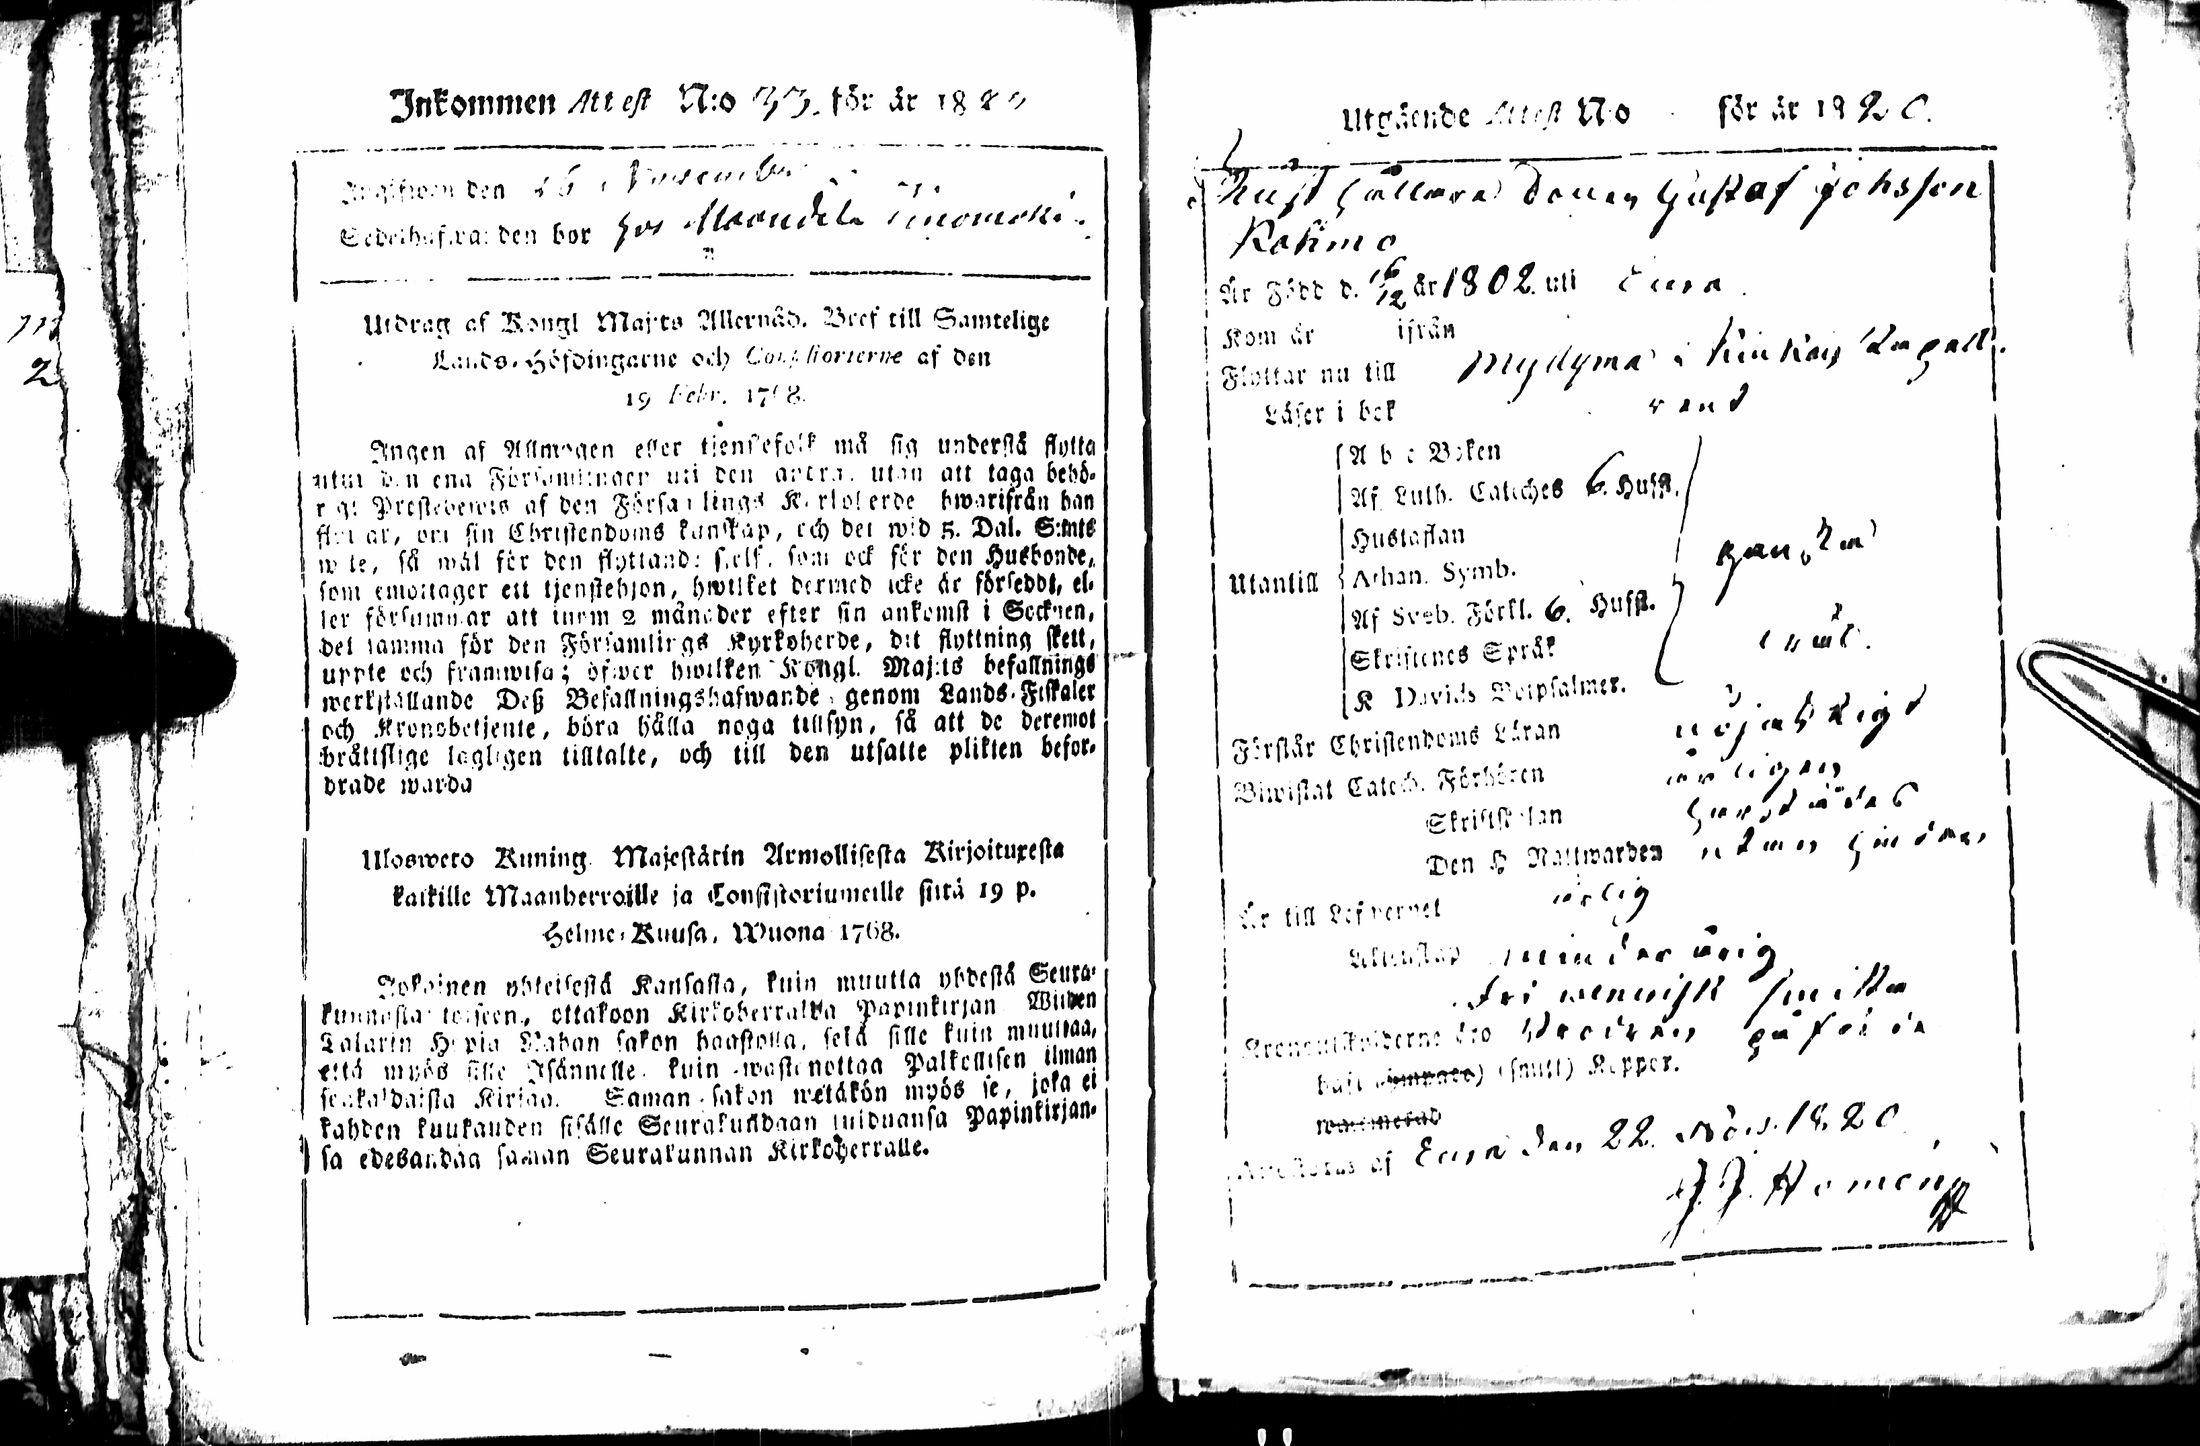 Inkommen Attest N:o 33. för är 1820
Angifwen den 26 November
Sedelhafwanden bor hos
Utdrag af Kongl Maj:ts Allernåd. Bref till Samtelige
Lands-Höfdingarne och Consistorierne af den
19 Febr. 1768.
Ingen af Allmogen eller tjenstefolk må sig understå flytta
utur den ena Församlingen uti den andra, utan att taga behö-
rigt Prestebewis af den Församlings Kyrkoherde hwarifrån han
flyttar, om sin Christendoms kunskap, och det wid 5. Dal. S:mts
wite, så wäl för den flyttande sielf, som ock för den Husbonde,
som emottager ett tjenstehjon, hwilket dermed icke är förseddt, el-
ler försummar att inom 2 månader efter sin ankomst i Socknen,
det samma för den Församlings Kyrkoherde, dit flyttning skett,
uppte och framwisa; öfwer hwilken Kongl. Maj:ts befallnings
werkställande Deß Befallningshafwande, genom Lands-Fiskaler
och Kronobetjente, böra hålla noga tillsyn, så att de deremot
bråttslige lagligen tilltalte, och till den utsatte plikten befor-
drade warda
Ulosweto Kuning. Majestätin Armollisesta Kirjoituxesta
kaikille Maanherroille ja Consistoriumeille siitä 19 p.
Helme-Kuusa, Wuona 1768.
Jokainen yhteisestä Kansasta, kuin muutta yhdestä Seura-
kunnasta toiseen, ottakoon Kirkoherralda Papinkirjan Wiiden
Talarin Hopia Rahan sakon haastolla, sekä sille kuin muuttaa,
että myös sille Isännelle, kuin wastanottaa Palkollisen ilman
senkaldaista Kirjaa. Saman sakon wetäkön myös se, joka ei
kahden kuukauden sisälle Seurakundaan tulduansa Papinkirjan-
sa edesandaa saman Seurakunnan Kirkoherralle.
Utgående Attest N:o för är 1820.
Rust hållare Sonen Gustaf Johsson
Kohmo
Är Född d. 16/12 år 1802. uti Eura
Kom år ifrån
Flyttar nu till Mydymä i Kiukais Capell.
Läser i bok rent
A b c Boken
Af Luth. Cateches 6. Hufst.
Hustaflan
Utantill Athan. Symb.
Af Sveb. Förkl. 6. Hufst.
Skriftenes Språk
K Davids Botpsalmer.
Förstår Christendoms Läran nöjaktigt
Biwistat Catech. Förhören årligen
Skriftskolan
Den H Nattwarden utan hinder
Är till Lefwernet ärlig
Äktenskap minderårig
Kronoutskylderne äro
haft (ympade) (smitt) Koppor.
waccinerad
Attesteras af Eura den 22. Nov. 1820